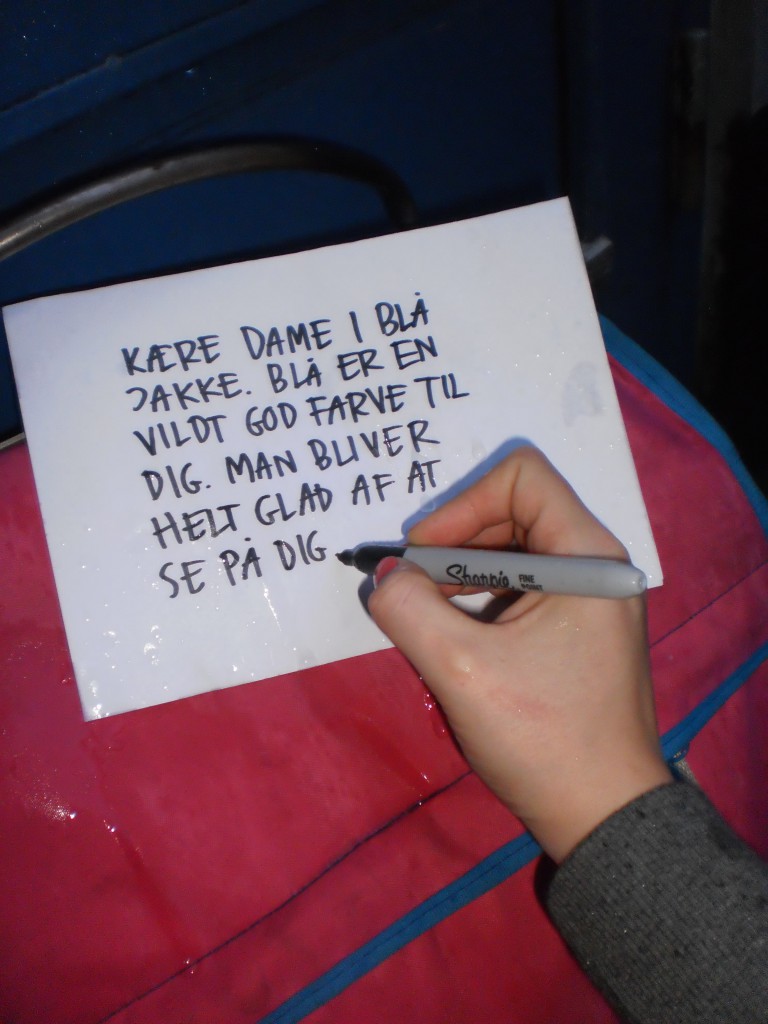 KÆRE DAME I BLÅ
JAKKE. BLÅ ER EN
VILDT GOD FARVE TIL
DIG. MAN BLIVER
HELT GLAD AF AT
SE PÅ DIG
Sharpie
FINE
POINT